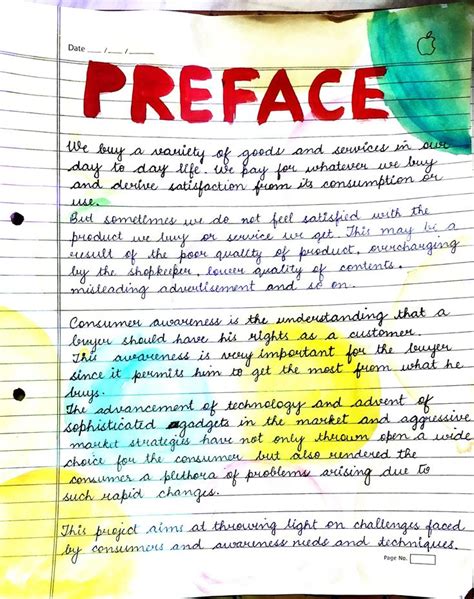 Date __/__/__
PREFACE
We buy a variety of goods and services in our
day to day life. We pay for whatever we buy
and derive satisfaction from its consumption or
use.
But sometimes we do not feel satisfied with the
product we buy or service we get. This may be a
result of the poor quality of product, overcharging
by the shopkeeper, lower quality of contents,
misleading advertisement and so on.
Consumer awareness is the understanding that a
buyer should have his rights as a customer.
This awareness is very important for the buyer
since it permits him to get the most from what he
buys.
The advancement of technology and advent of
sophisticated gadgets in the market and aggressive
market strategies have not only thrown open a wide
choice for the consumer but also rendered the
consumer a plethora of problems arising due to
such rapid changes.
This project aims at throwing light on challenges faced
by consumers and awareness needs and techniques.
Page No.